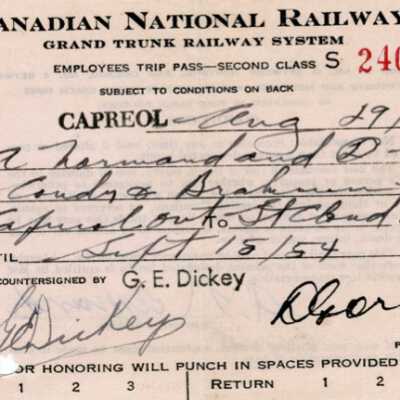 ANADIAN NATIONAL RAILWAY
GRAND TRUNK RAILWAY SYSTEM
EMPLOYEES TRIP PASS—SECOND CLASS S 240
SUBJECT TO CONDITIONS ON BACK
CAPREOL Aug 29/
Normand and D
Condr & Brakemen
Capreol Ont TO St Cloud
TIL Sept 15/54
COUNTERSIGNED BY G. E. Dickey
GE Dickey
OR HONORING WILL PUNCH IN SPACES PROVIDED
1 2 3 RETURN 1 2